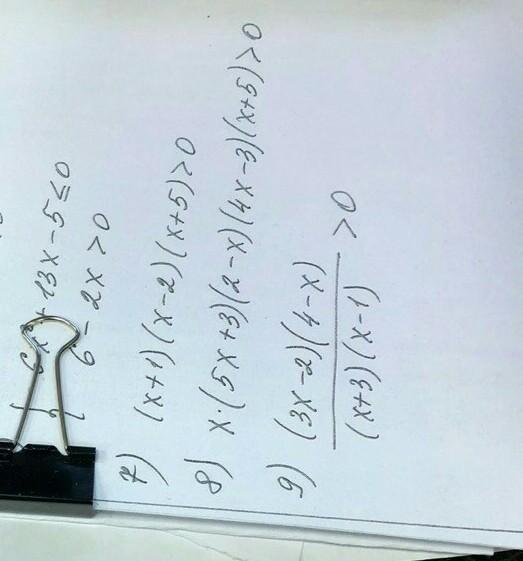 6x² + 13x - 5 ≤ 0
6 - 2x > 0
7) (x+1)(x-2)(x+5)>0
8) x·(5x+3)(2-x)(4x-3)(x+5)>0
9) (3x-2)(4-x)
(x+3)(x-1) >0